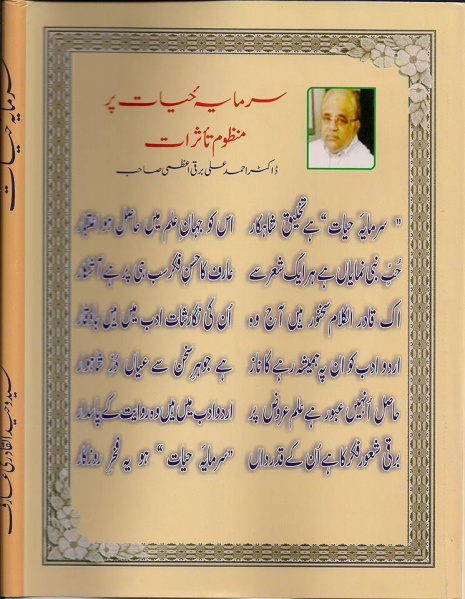 سرمایۂ حیات پر
منظوم تأثرات
ڈاکٹر احمد علی برقی اعظمی صاحب
” سرمایۂ حیات “ ہے تخلیقِ شاہکار اس کو جہانِ علم میں حاصل ہو اعتبار
حُبِّ نبی نمایاں ہے ہر ایک شعر سے عارف کا حسنِ فکر سبھی پر ہے آشکار
اک قادر الکلام سخنور ہیں آج وہ اُن کی نگارشات ادب میں ہیں باوقار
اردو ادب کو ان پہ ہمیشہ رہے گا ناز ہے جوہرِ سخن سے عیاں دُرِّ شاہوار
حاصل اُنہیں عبور ہے علمِ عروض پر اردو ادب میں ہیں وہ روایت کے پاسدار
برقی شعورِ فکر کا ہے اُن کے قدرداں ”سرمایۂ حیات “ ہو یہ فخرِ روزگار
سرمایۂ حیات
سید وحید القادری عارف